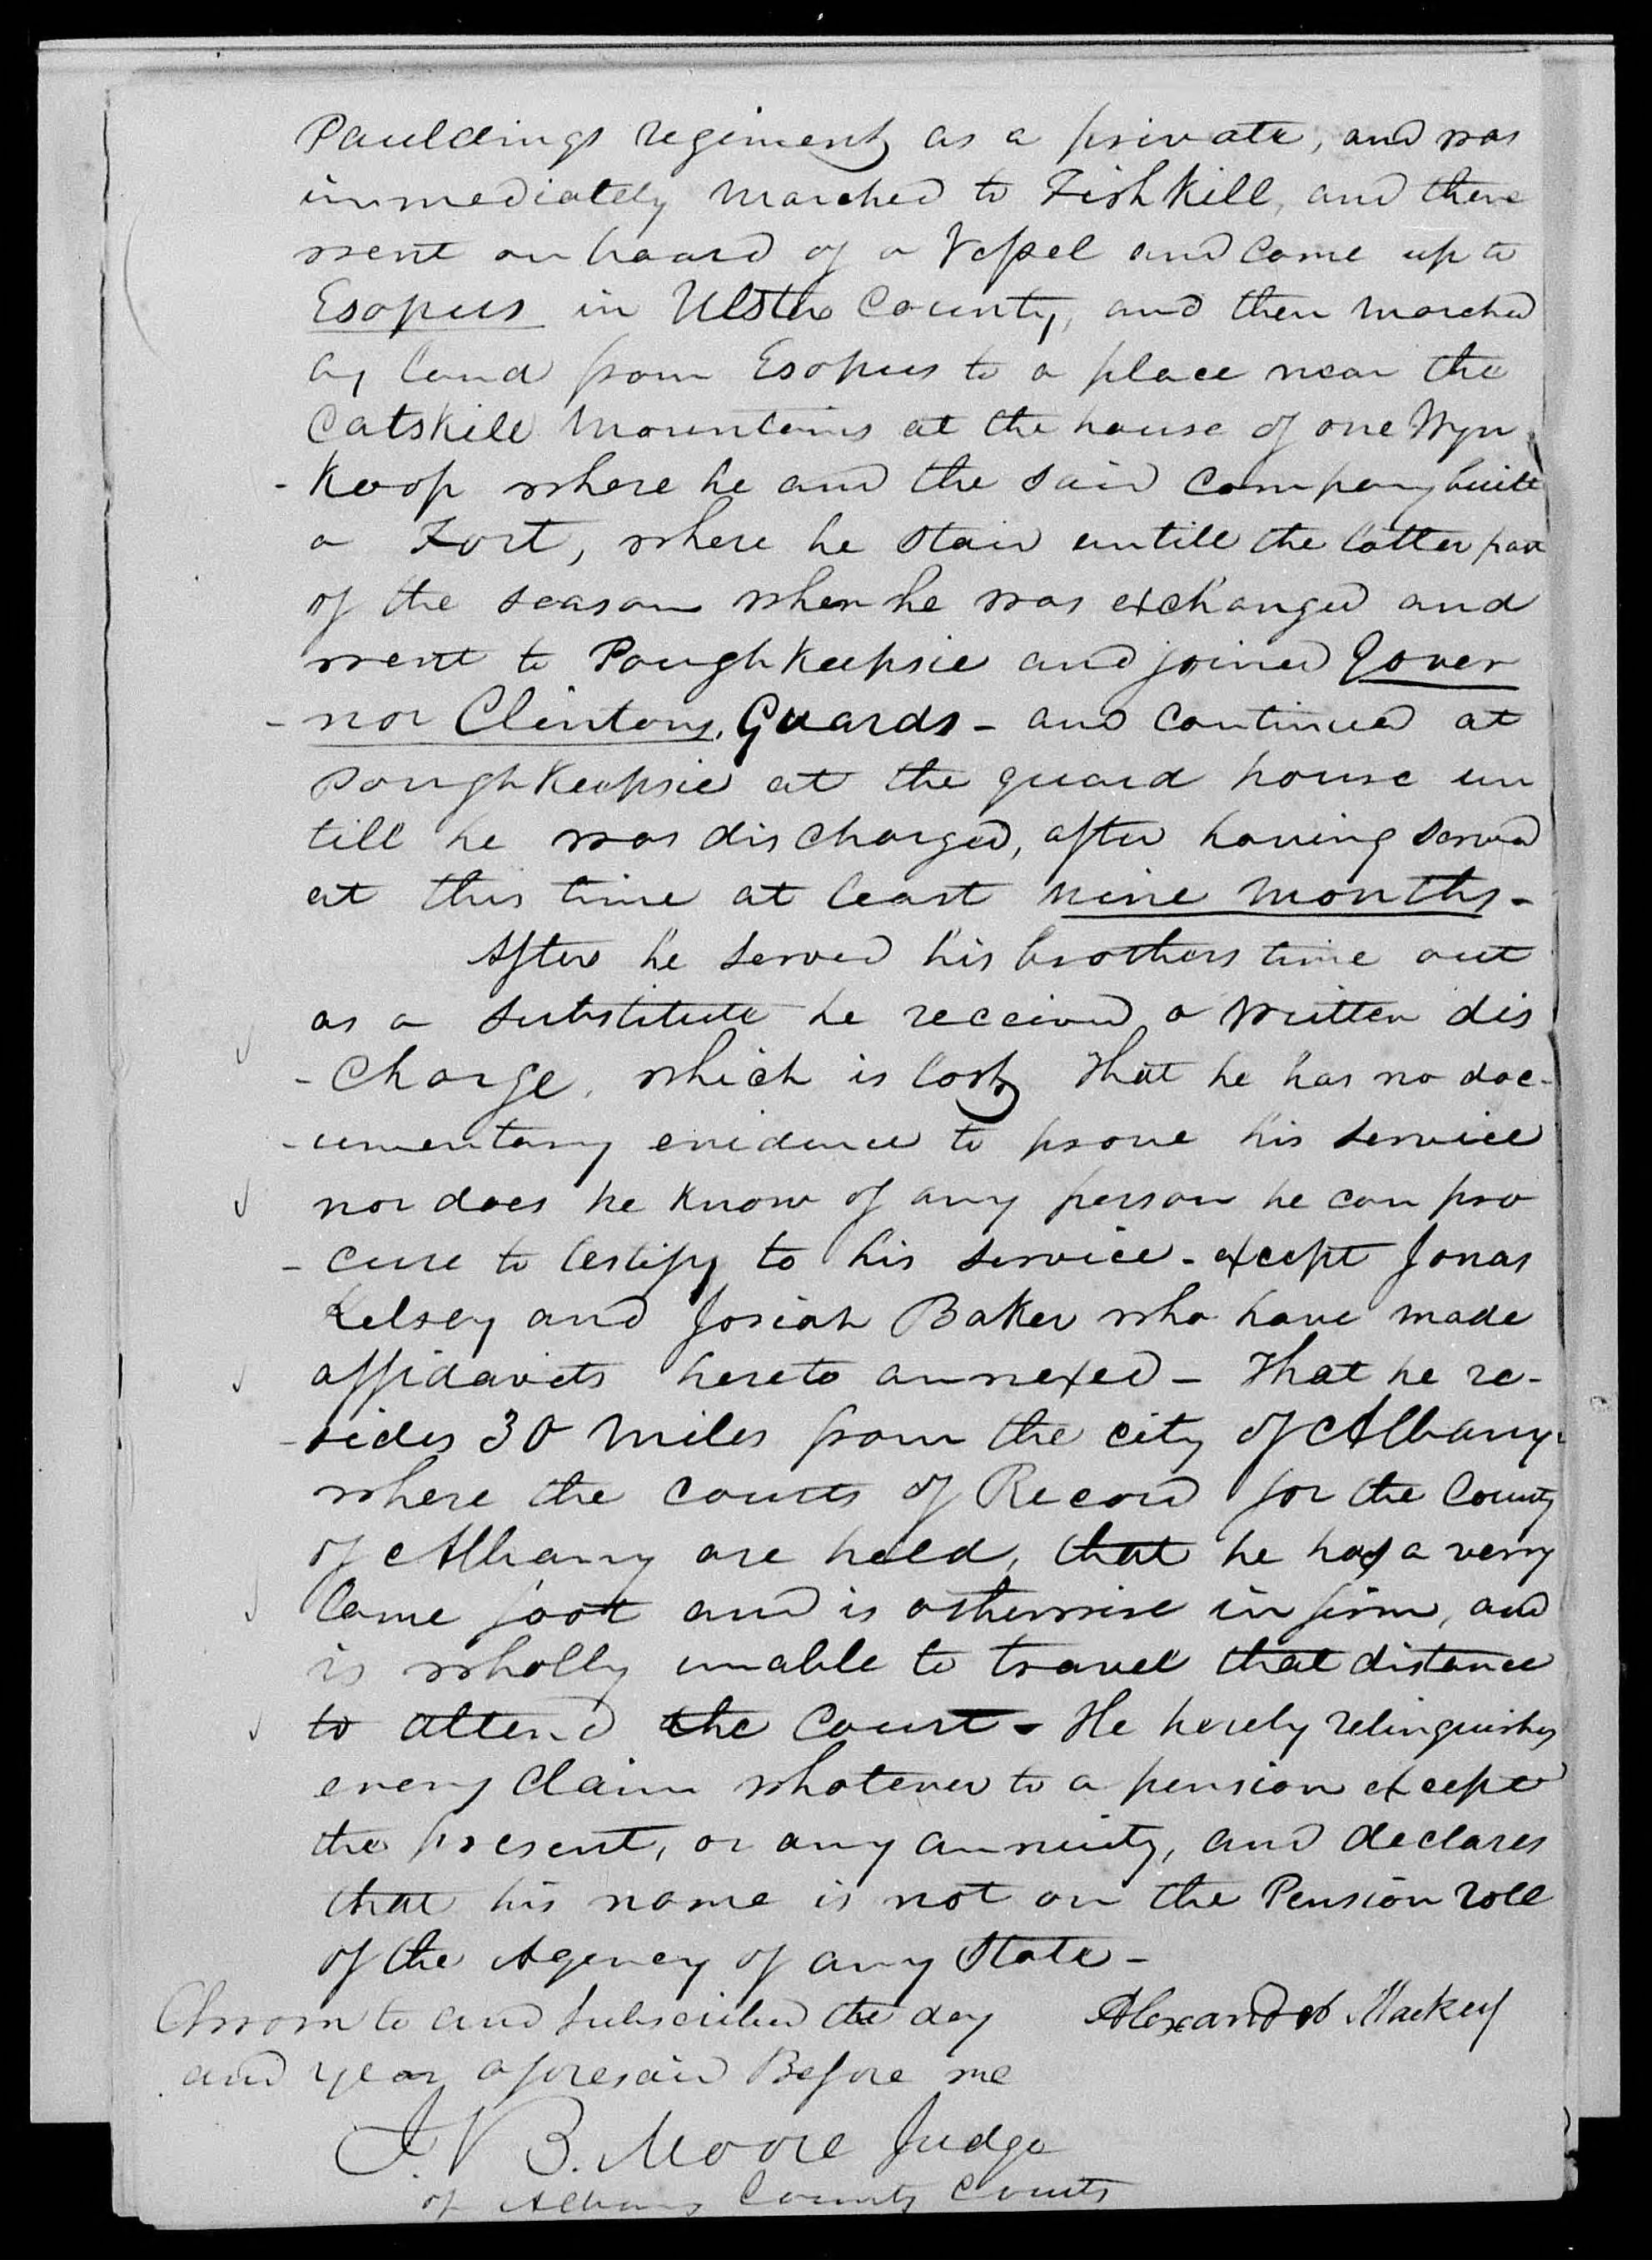 Pauldings regiment as a private, and was
immediately marched to Fishkill, and there
went on board of a Vessel and came up to
Esopus in Ulster County, and then marched
by land from Esopus to a place near the
Catskill Mountains at the house of one Wyn
-koop where he and the said company built
a Fort, where he staid untill the latter part
of the season when he was exchanged and
went to Poughkeepsie and joined Gover
-nor Clintons, Guards - and continued at
Poughkeepsie at the guard house un
till he was discharged, after having served
at this time at least nine months -
After he served his brothers time out
as a substitute he received a written dis
-charge, which is lost, That he has no doc-
-umentary evidence to prove his service
nor does he know of any person he can pro
-cure to testify to his service - except Jonas
Kelsey and Josiah Baker who have made
affidavits hereto annexed - That he re-
-sides 30 miles from the city of Albany
where the courts of Record for the County
of Albany are held, that he has a verry
lame foot and is otherwise infirm, and
is wholly unable to travel that distance
to attend the Court - He hereby relinquishes
every claim whatever to a pension except
the present, or any annuity, and declares
that his name is not on the Pension roll
of the Agency of any State -
Sworn to and subscribed the day
and year aforesaid Before me
Alexander Mackey
J. V B. Moore Judge
of Albany County Courts